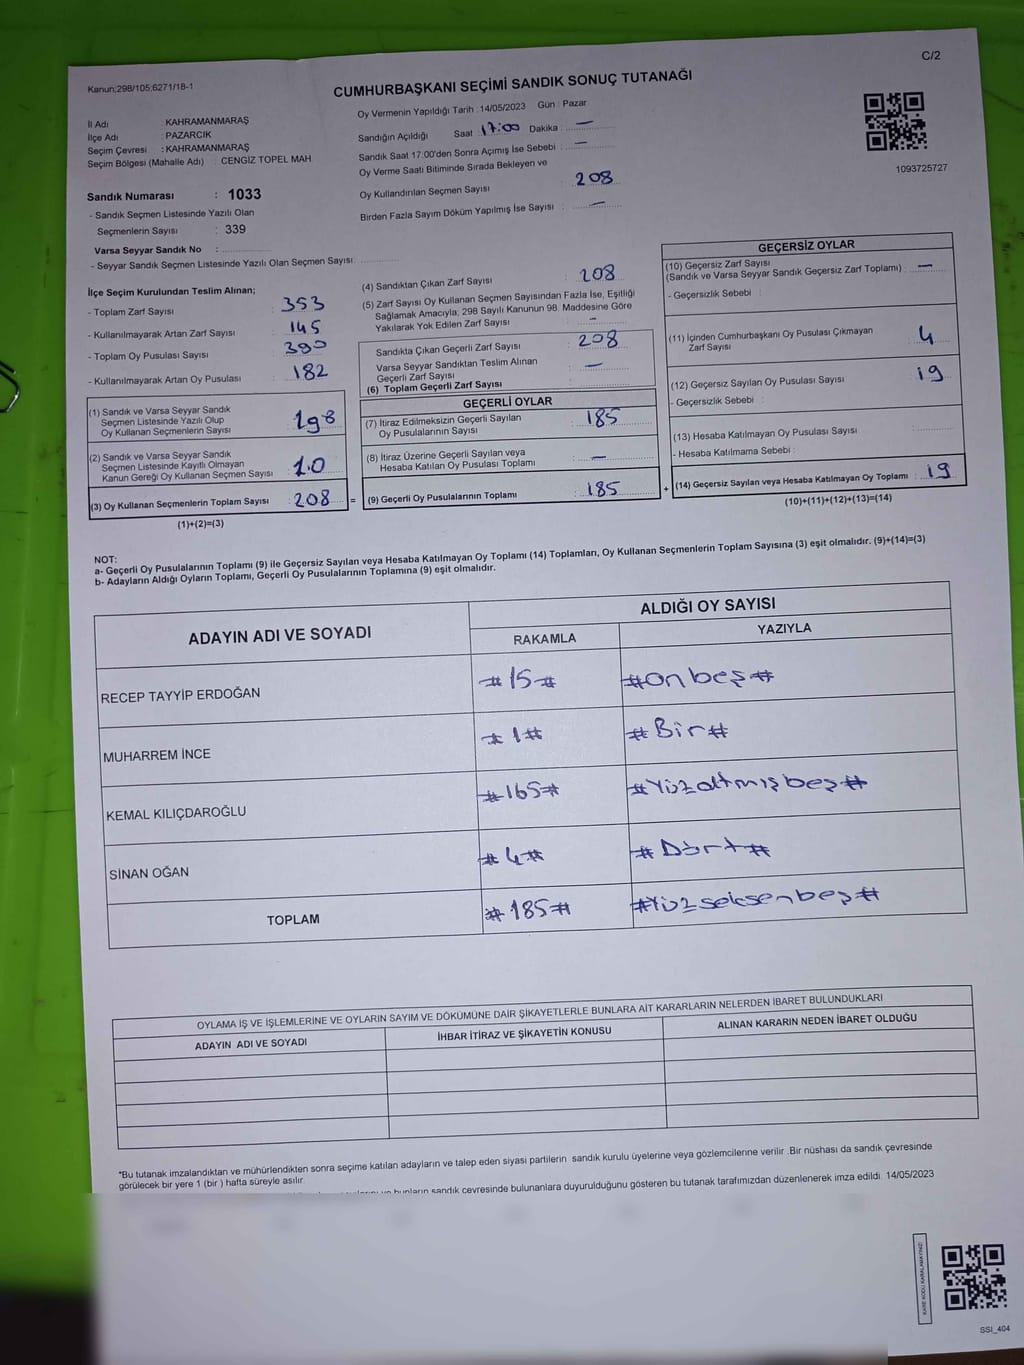 C/2
Kanun;298/105;6271/18-1
CUMHURBAŞKANI SEÇİMİ SANDIK SONUÇ TUTANAĞI
1093725727
İl Adı KAHRAMANMARAŞ
İlçe Adı : PAZARCIK
Seçim Çevresi : KAHRAMANMARAŞ
Seçim Bölgesi (Mahalle Adı) : CENGİZ TOPEL MAH
Sandık Numarası : 1033
- Sandık Seçmen Listesinde Yazılı Olan
Seçmenlerin Sayısı : 339
Varsa Seyyar Sandık No :
- Seyyar Sandık Seçmen Listesinde Yazılı Olan Seçmen Sayısı :
Oy Vermenin Yapıldığı Tarih : 14/05/2023 Gün : Pazar
Sandığın Açıldığı Saat : 17:00 Dakika : —
Sandık Saat 17:00'den Sonra Açımış İse Sebebi : —
Oy Verme Saati Bitiminde Sırada Bekleyen ve
Oy Kullandırılan Seçmen Sayısı : 208
Birden Fazla Sayım Döküm Yapılmış İse Sayısı : —
İlçe Seçim Kurulundan Teslim Alınan;
- Toplam Zarf Sayısı : 353
- Kullanılmayarak Artan Zarf Sayısı : 145
- Toplam Oy Pusulası Sayısı : 390
- Kullanılmayarak Artan Oy Pusulası : 182
(1) Sandık ve Varsa Seyyar Sandık
Seçmen Listesinde Yazılı Olup
Oy Kullanan Seçmenlerin Sayısı : 198
(2) Sandık ve Varsa Seyyar Sandık
Seçmen Listesinde Kayıtlı Olmayan
Kanun Gereği Oy Kullanan Seçmen Sayısı : 10
(3) Oy Kullanan Seçmenlerin Toplam Sayısı : 208 =
(1)+(2)=(3)
(4) Sandıktan Çıkan Zarf Sayısı : 208
(5) Zarf Sayısı Oy Kullanan Seçmen Sayısından Fazla İse, Eşitliği
Sağlamak Amacıyla; 298 Sayılı Kanunun 98. Maddesine Göre
Yakılarak Yok Edilen Zarf Sayısı : —
Sandıkta Çıkan Geçerli Zarf Sayısı : 208
Varsa Seyyar Sandıktan Teslim Alınan
Geçerli Zarf Sayısı : —
(6) Toplam Geçerli Zarf Sayısı
GEÇERLİ OYLAR
(7) İtiraz Edilmeksizin Geçerli Sayılan
Oy Pusulalarının Sayısı : 185
(8) İtiraz Üzerine Geçerli Sayılan veya
Hesaba Katılan Oy Pusulası Toplamı : —
(9) Geçerli Oy Pusulalarının Toplamı : 185 +
GEÇERSİZ OYLAR
(10) Geçersiz Zarf Sayısı
(Sandık ve Varsa Seyyar Sandık Geçersiz Zarf Toplamı) : —
- Geçersizlik Sebebi :
(11) İçinden Cumhurbaşkanı Oy Pusulası Çıkmayan
Zarf Sayısı : 4
(12) Geçersiz Sayılan Oy Pusulası Sayısı : 19
- Geçersizlik Sebebi :
(13) Hesaba Katılmayan Oy Pusulası Sayısı :
- Hesaba Katılmama Sebebi :
(14) Geçersiz Sayılan veya Hesaba Katılmayan Oy Toplamı : 19
(10)+(11)+(12)+(13)=(14)
NOT:
a- Geçerli Oy Pusulalarının Toplamı (9) ile Geçersiz Sayılan veya Hesaba Katılmayan Oy Toplamı (14) Toplamları, Oy Kullanan Seçmenlerin Toplam Sayısına (3) eşit olmalıdır. (9)+(14)=(3)
b- Adayların Aldığı Oyların Toplamı, Geçerli Oy Pusulalarının Toplamına (9) eşit olmalıdır.
ADAYIN ADI VE SOYADI ALDIĞI OY SAYISI
RAKAMLA YAZIYLA
RECEP TAYYİP ERDOĞAN #15# #On beş#
MUHARREM İNCE #1# #Bir#
KEMAL KILIÇDAROĞLU #165# #Yüzaltmışbeş#
SİNAN OĞAN #4# #Dört#
TOPLAM #185# #Yüzseksenbeş#
OYLAMA İŞ VE İŞLEMLERİNE VE OYLARIN SAYIM VE DÖKÜMÜNE DAİR ŞİKAYETLERLE BUNLARA AİT KARARLARIN NELERDEN İBARET BULUNDUKLARI
ADAYIN ADI VE SOYADI İHBAR İTİRAZ VE ŞİKAYETİN KONUSU ALINAN KARARIN NEDEN İBARET OLDUĞU
*Bu tutanak imzalandıktan ve mühürlendikten sonra seçime katılan adayların ve talep eden siyasi partilerin sandık kurulu üyelerine veya gözlemcilerine verilir .Bir nüshası da sandık çevresinde
görülecek bir yere 1 (bir ) hafta süreyle asılır.
bunların sandık çevresinde bulunanlara duyurulduğunu gösteren bu tutanak tarafımızdan düzenlenerek imza edildi. 14/05/2023
KARE KODU KARALAMAYINIZ!
SSI_404